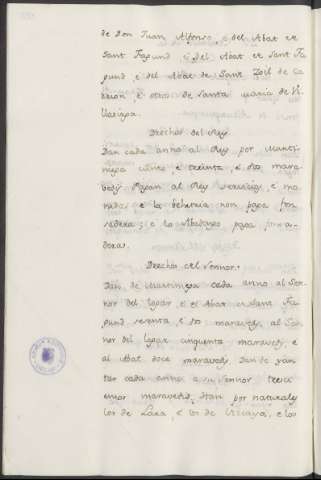 de Don Juan Alfonso, è del Abat et
Sant Fagund è del Abat et Sant Fa
gund è del Abat de Sant Zoil de Ca
rrion è otro de Santa Maria de Vi
Derechos del Rey
Dan cada anno al Rey por Marti
niega ciento è treinta è dos mara
vedis Pagan al Rey servicios, è mo
nedas è la behetria non paga fon
sadera; è lo Abadengo paga fonsa
dera.
Derechos del Sennor.
Dan de Martiniega cada anno al Sen
nor del logar è el Abat de Sant Fa
gund sesenta, è dos maravedis, al Sen
nor del logar cinquenta maravedis, e
al Abat doce maravedis. Dan de yan
tar cada anno a su Sennor
maravedis, Han por naturales
los de Lara, è los de Vizcaya, e los